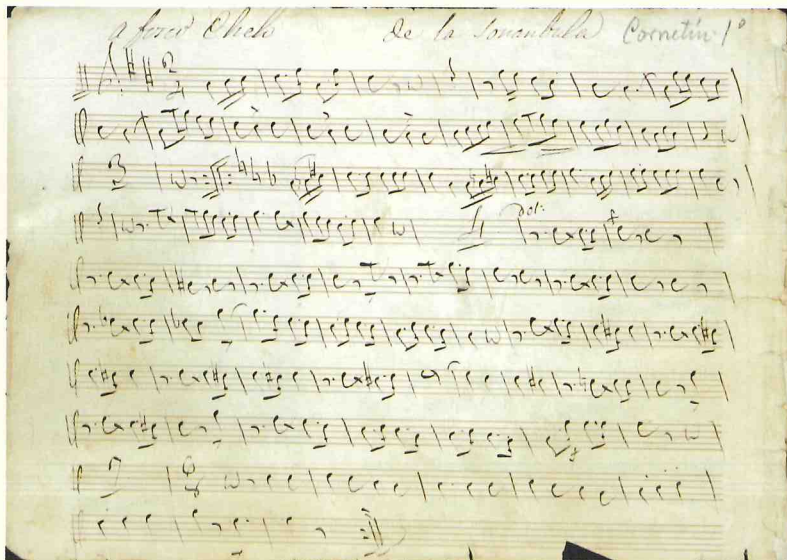 a fosco Chelo de la Sonanbula Cornetín 1º
dol: